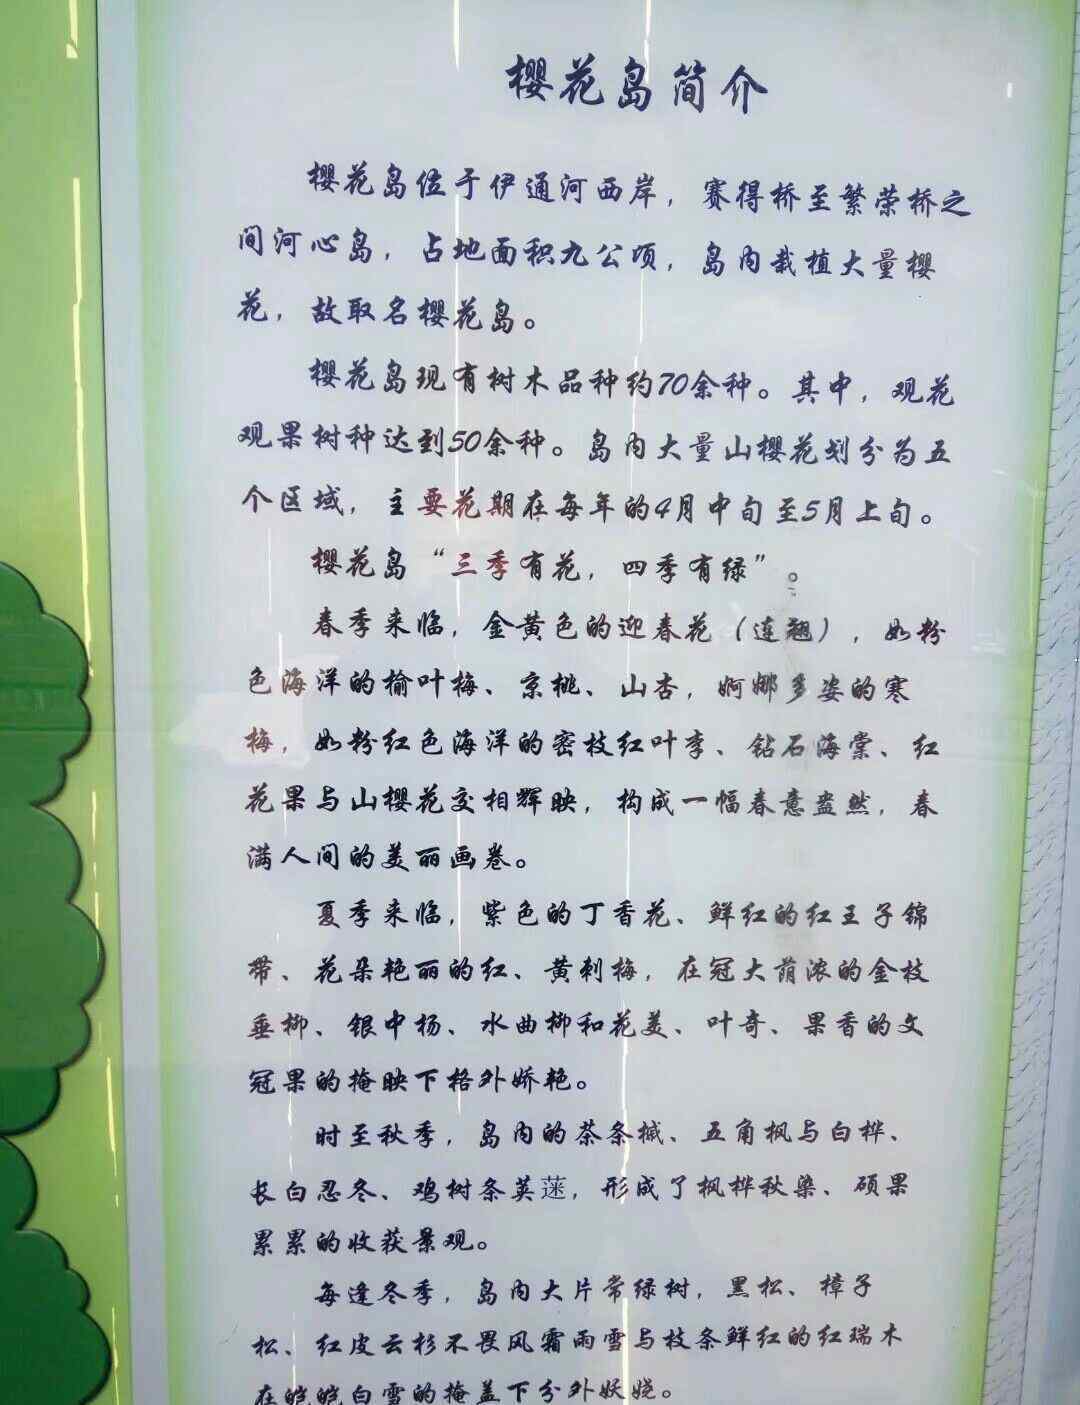 樱花岛简介
樱花岛位于伊通河西岸，赛得桥至繁荣桥之
间河心岛，占地面积九公顷，岛内栽植大量樱
花，故取名樱花岛。
樱花岛现有树木品种约70余种。其中，观花
观果树种达到50余种。岛内大量山樱花划分为五
个区域，主要花期在每年的4月中旬至5月上旬。
樱花岛“三季有花，四季有绿”。
春季来临，金黄色的迎春花（连翘），如粉
色海洋的榆叶梅、京桃、山杏，婀娜多姿的寒
梅，如粉红色海洋的密枝红叶李、钻石海棠、红
花果与山樱花交相辉映，构成一幅春意盎然，春
满人间的美丽画卷。
夏季来临，紫色的丁香花、鲜红的红王子锦
带、花朵艳丽的红、黄刺梅，在冠大荫浓的金枝
垂柳、银中杨、水曲柳和花美、叶奇、果香的文
冠果的掩映下格外娇艳。
时至秋季，岛内的茶条槭、五角枫与白桦、
长白忍冬、鸡树条荚蒾，形成了枫桦秋染、硕果
累累的收获景观。
每逢冬季，岛内大片常绿树，黑松、樟子
松、红皮云杉不畏风霜雨雪与枝条鲜红的红瑞木
在皑皑白雪的掩盖下分外妖娆。